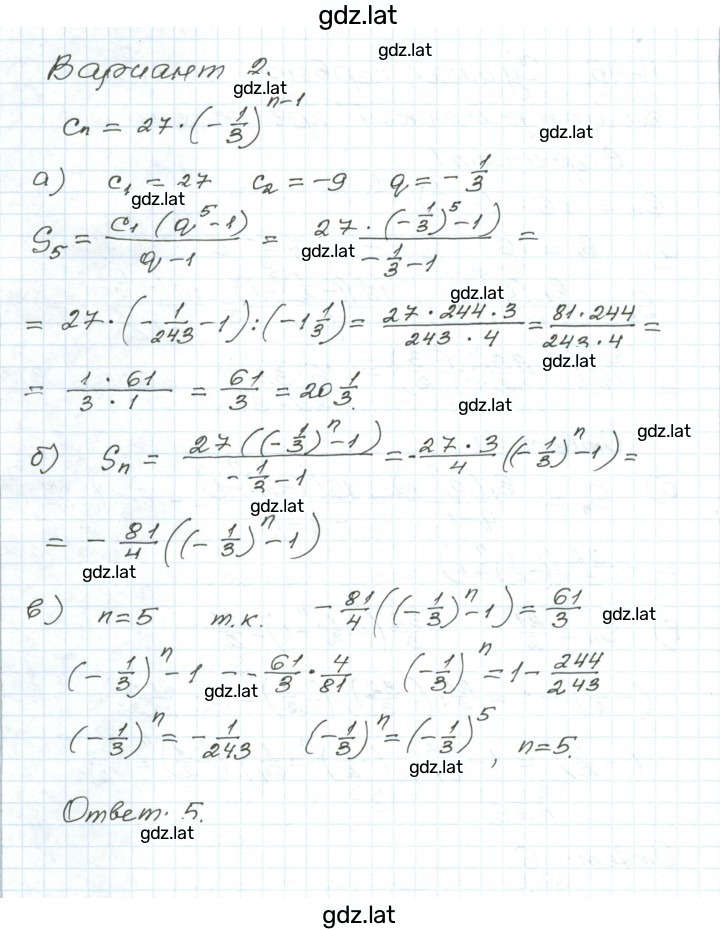 gdz.lat
gdz.lat
Вариант 2.
gdz.lat
cₙ = 27·(-1/3)^(n-1)
gdz.lat
а) c₁ = 27 c₂ = -9 q = -1/3
gdz.lat
S₅ = c₁(q⁵-1)/(q-1) = 27·(-1/3)⁵-1)/(-1/3-1) =
gdz.lat
gdz.lat
= 27·(-1/243-1):(-1 1/3) = 27·244·3/(243·4) = 81·244/(243·4) =
gdz.lat
= 1·61/(3·1) = 61/3 = 20 1/3.
gdz.lat
gdz.lat
б) Sₙ = 27((-1/3)ⁿ-1)/(-1/3-1) = -27·3/4((-1/3)ⁿ-1) =
gdz.lat
= -81/4((-1/3)ⁿ-1)
gdz.lat
в) n=5 т.к. -81/4((-1/3)ⁿ-1) = 61/3
gdz.lat
(-1/3)ⁿ-1 - -61/3·4/81 (-1/3)ⁿ = 1-244/243
gdz.lat
(-1/3)ⁿ = -1/243 (-1/3)ⁿ = (-1/3)⁵, n=5.
gdz.lat
Ответ. 5.
gdz.lat
gdz.lat